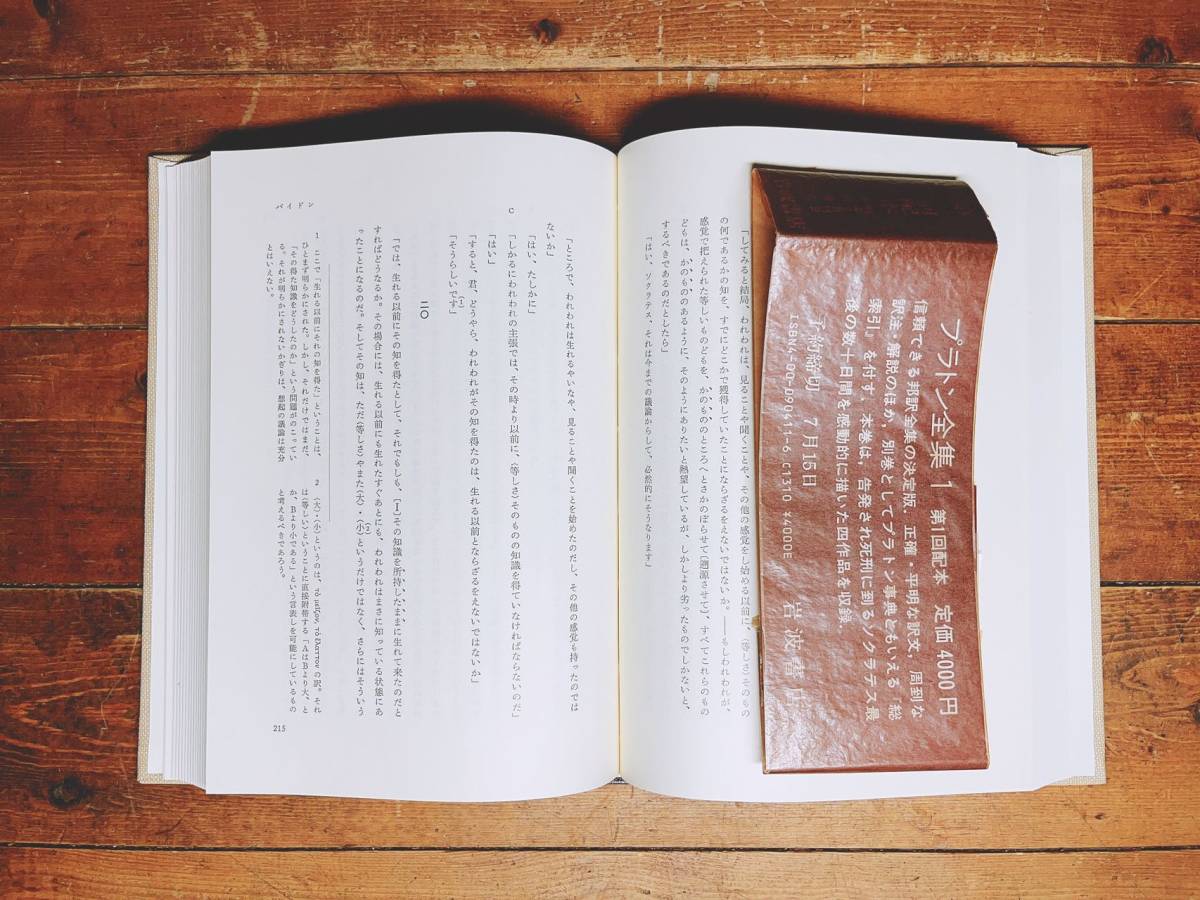 「してみると結局、われわれは、見ることや聞くことや、その他の感覚をし始める以前に、〈等しさ〉そのもの
の何であるか の知を、すでにどこかで獲得していたことにならざるをえないではないか。――もしわれわれが、
感覚で把えられた等しいものどもを、かのもののところへとさかのぼらせて〔遡源させて〕、すべてこれらのもの
どもは、かのもののあるように、そのようにありたいと熱望しているが、しかしより劣ったものでしかないと、
するべきであるのだとしたら」
「はい、ソクラテス、それは今までの議論からして、必然的にそうなります」
「ところで、われわれは生れるやいなや、見ることや聞くことを始めたのだし、その他の感覚も持ったのでは
ないか」
「はい、たしかに」
C
「しかるにわれわれの主張では、その時より以前に、〈等しさ〉そのものの知識を得ていなければならないのだ」
「はい」
「すると、君、どうやら、われわれがその知を得たのは、生れる以前とならざるをえないではないか」
「そうらしいです」(1)
二〇
「では、生れる以前にその知を得たとして、それでもしも、[I]その知識を所持したままに生れて来たのだと
すればどうなるか。その場合には、生れる以前にも生れたすぐあとにも、われわれはまさに知っている状態にあ
ったことになるのだ。そしてその知は、ただ〈等しさ〉やまた〈大〉・〈小〉(2)というだけではなく、さらにはそういう
1 ここで「生れる以前にそれの知を得た」ということは、
ひとまず明らかにされた。しかし、それだけではまだ、
「その得た知識をどうしたのか」という問題がのこってい
る。それが明らかにされないかぎりは、想起の議論は充分
とはいえない。
2 〈大〉・〈小〉というのは、τὸ μεῖζον, τὸ ἔλαττον の訳。それ
は〈等しい〉ということに直接対格する「AはBより大、と
か、Bより小である」という言表しを可能にしているもの
と考えるべきであろう。
パイドン
215
プラトン全集 1 第1回配本 定価 4000円
信頼できる邦訳全集の決定版. 正確・平明な訳文, 周到な
訳注・解説のほか, 別巻としてプラトン事典ともいえる『総
索引』を付す. 本巻は, 告発され死刑に到るソクラテス最
後の数十日間を感動的に描いた四作品を収録.
予約締切 7月15日
岩波書店
ISBN4-00-090411-6 C1310 ¥4000E